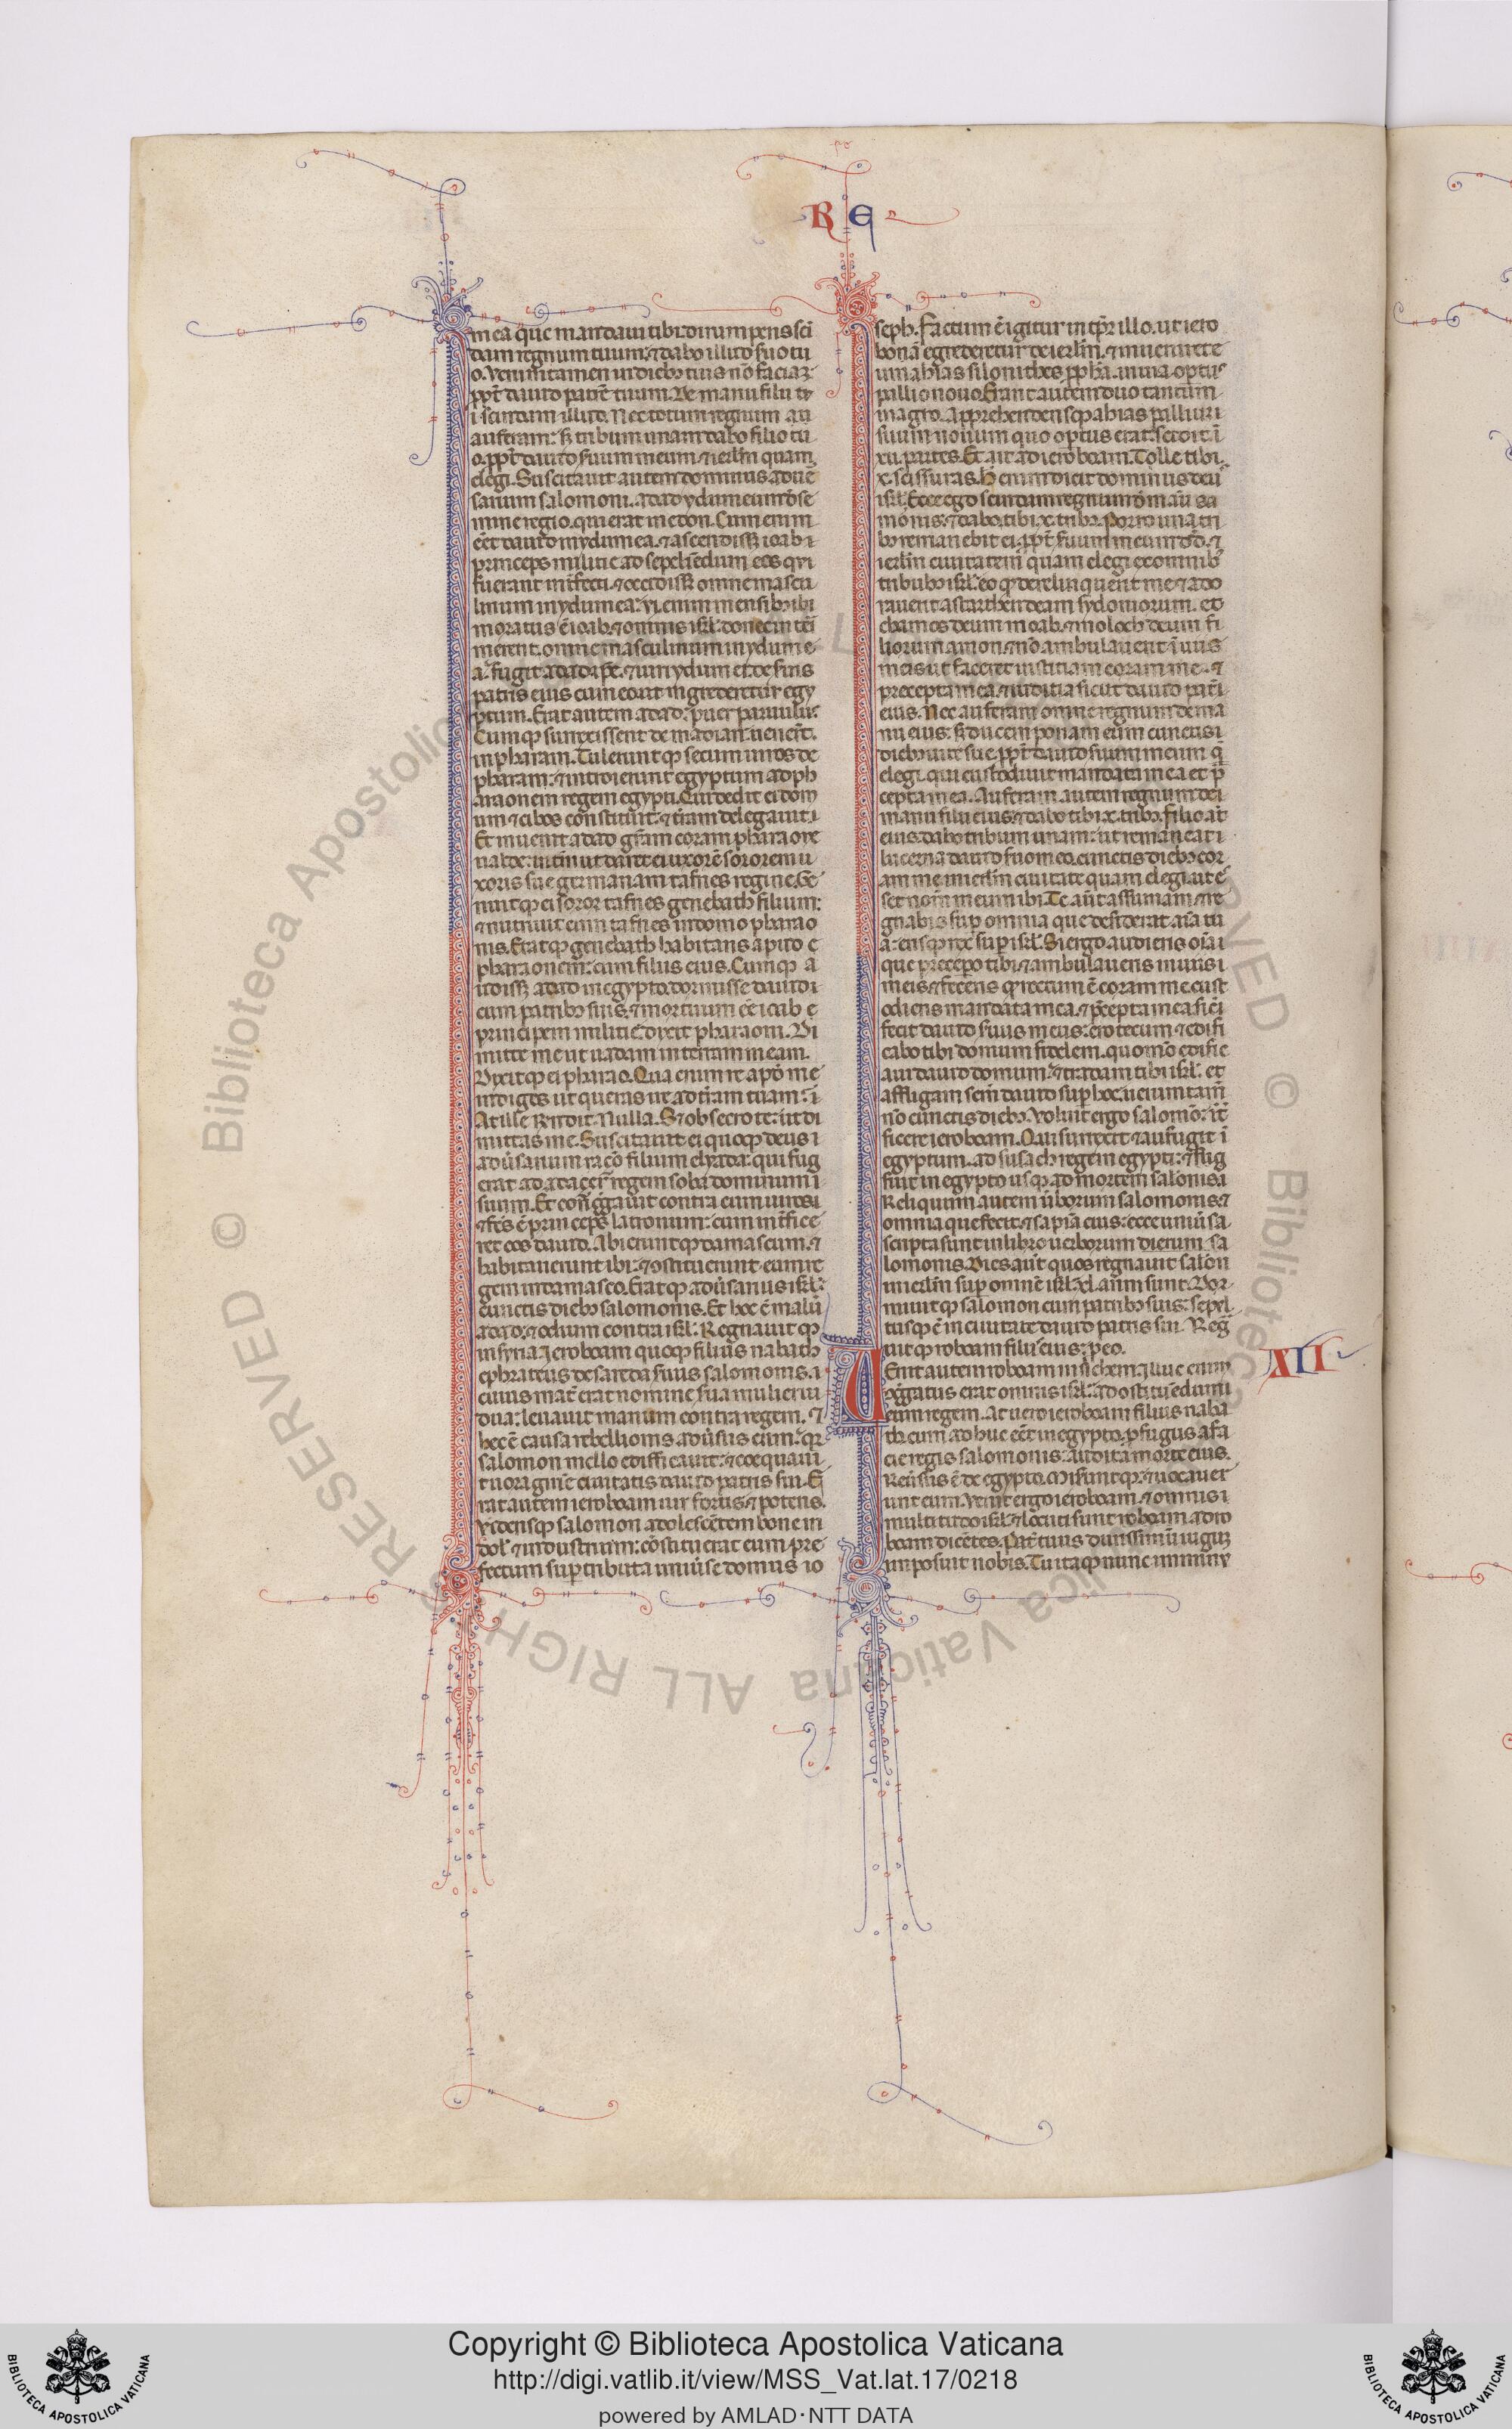 R E
mea que mandaui tibi. dirumpens sci
dam regnum tuum: ⁊ dabo illud suo tu
o. Veruntamen in dieb; tuis nō faciaꝫ
ppt̄ dauid patrē tuum. De manu filii tu
i scindam illud. Nec totum regnum au
auferam: s; tribum unam dabo filio tu
o. ppt̄ dauid suum meum. ⁊ ierlm̄ quam
elegi. Suscitauit autem dominus aduē
sarium salomoni. adad ydumeum de se
mine regio. qui erat in edon. Cum enim
eēt dauid in ydumea. ⁊ ascendiss; ioab i
princeps militie ad sepeliēdum eos qui
fuerant int̄fecti. ⁊ occidiss; omne mascu
linum in ydumea: vi. enim mensib; ibi
moratus ē ioab. ⁊ omnis isrl̄. donec int̄i
meret. omne masculinum in ydume
a. fugit adad ip̄e. ⁊ uiri ydumei de suis
patris eius cum eo ut ingrederetur egy
ptum. Erat autem adad. puer paruulus
Cumq; surrexissent de madian. uenerūt
in pharam. Tuleruntq; secum uiros de
pharam: ⁊ introierunt egyptum ad ph
araonem regem egypti. Qui dedit ei dom
um ⁊ cibos constituit. ⁊ tr̄am delegauit. i
Et inuenit adad gr̄am coram pharaone
ualde: in tm̄ ut daret ei uxorē sororem u
xoris sue germanam tafnes regine. Ge
nuitq; ei soror tafnes genebath filium:
⁊ nutriuit eum tafnes in domo pharao
nis. Eratq; genebath habitans apud e
pharaonem: cum filiis eius. Cumq; a
udiss; adad in egypto. dormisse dauid i
cum patrib; suis. ⁊ mortuum eē ioab e
principem militie. dixit pharaoni. Di
mitte me ut uadam in terram meam.
Dixitq; ei pharao. Qua enim re apd̄ me
indiges ut queras ire ad tr̄am tuam. i
At ille Rn̄dit. Nulla. S; obsecro te: ut di
mittas me. Suscitauit ei quoq; deus i
adūsarium razō filium elyada: qui fug
erat adadaezer regem soba dominum i
suum. Et congregauit contra eum uiros i
⁊ fc̄s ē princeps latronum: cum int̄fice
ret eos dauid. Abieruntq; damascum. ⁊
habitauerunt ibi: ⁊ ostituerunt eum re
gem in damasco. Eratq; adūsarius isrl̄.
cunctis dieb; salomonis. Et hoc ē malū
adad. ⁊ odium contra isrl̄. Regnauitq;
in syria. Jeroboam quoq; filius nabath
ephrateus de sareda suus salomonis. i
cuius mat̄ erat nomine sarua mulier ui
dua: leuauit manum contra regem. ⁊
hec ē causa rebellionis adūsus eum. qr
salomon mello edificauit. ⁊ coequauit
uoraginē ciuitatis dauid patris sui. E
rat autem ieroboam uir fortis. ⁊ potens.
Vidensq; salomon adolescētem bone in
dol̄. ⁊ industrium: cōstituerat eum pre
fectum sup tributa uniūse domus io
seph. Factum ē igitur in tp̄r illo. ut iero
boam egrederetur de ierlm̄. ⁊ inueniret e
um ahias silonithes. ppha. in uia optus
pallio nouo. Erant autem duo tantum
in agro. Apprehendensq; ahias pallium
suum nouum quo optus erat: scidit ī
xii. partes. Et ait ad ieroboam. Tolle tibi
x. scissuras. H̄ enim dicit dominus deus
isrl̄. Ecce ego scindam regnum de manu sa
monis: ⁊ dabo tibi x. trib;. Porro una tri
b; remanebit ei. ppt̄ suum meum dd̄. ⁊
ierlm̄ ciuitatem quam elegi ex omnib;
tribub; isrl̄. eo qd̄ derelinquerit me ⁊ ado
rauerit astarthen deam sydoniorum. et
chamos deum moab. ⁊ moloch deum fi
liorum amon. ⁊ nō ambulauerit ī uiis
meis ut faceret iustitiam coram me. ⁊
precepta mea. ⁊ iuditia sicut dauid patri
eius. Nec auferam omne regnum de ma
nu eius: s; ducem ponam eum cunctis i
dieb; uite sue. ppt̄ dauid suum meum q̄
elegi. qui custodiuit mandata mea et p̄
cepta mea. Auferam autem regnum de i
manu filii eius. ⁊ dabo tibi x. trib;. Filio aūt
eius. dabo tribum unam: ut remaneat i
lucerna dauid suo meo. cunctis dieb; cor
am me in ierlm̄ ciuitate quam elegi. ut e
set nom̄ meum ibi. Te aūt assumam. ⁊ re
gnabis sup omnia que desiderat aīa tu
a: erisq; rex sup isrl̄. Si ergo audieris oīa i
que precepo tibi. ⁊ ambulaueris in uiis i
meis. ⁊ feceris qd̄ rectum ē coram me. cust
odiens mandata mea. ⁊ p̄cepta mea sic̄
fecit dauid suus meus: ero tecum ⁊ edifi
cabo tibi domum fidelem. quomō edific
aui dauid domum. ⁊ tradam tibi isrl̄. et
affligam sem̄ dauid sup hoc: ueruntam̄
nō cunctis dieb;. Voluit ergo salomō. int̄
ficere ieroboam. Qui surrexit ⁊ aufugit ī
egyptum. ad susach regem egypti: ⁊ fug
fuit in egypto usq; ad mortem salōnis. i
Reliquum autem ūborum salomonis. ⁊
omnia que fecit. ⁊ sapīa eius: ecce uniūsa
scripta sunt in libro uerborum dierum sa
lomonis. Dies aūt quos regnauit salōn
in ierlm̄ sup omnē isrl̄. xl. anni sunt. Dor
miuitq; salomon cum patrib; suis: sepel
tusq; ē in ciuitate dauid patris sui. Reg
uitq; roboam filius eius: p eo.
XII
Uenit autem roboam in sichem. Illuc enim
ogregatus erat omnis isrl̄. ad ostituēdum
eum regem. At uero ieroboam filius naba
th cum adhuc eēt in egypto. pfugus a fa
cie regis salomonis. audita morte eius.
Reūsus ē de egypto. Miseruntq; ⁊ uocauer
unt eum. Venit ergo ieroboam. ⁊ omnis i
multitudo isrl̄. ⁊ locuti sunt roboam ad ro
boam dicētes. Pat̄ tuus durissimū iuguꝫ
imposuit nobis. Tu itaq; nunc imminy
© Biblioteca Apostolica Vaticana ALL RIGHTS RESERVED
Copyright © Biblioteca Apostolica Vaticana
http://digi.vatlib.it/view/MSS_Vat.lat.17/0218
powered by AMLAD·NTT DATA
BIBLIOTECA APOSTOLICA VATICANA
BIBLIOTECA APOSTOLICA VATICANA